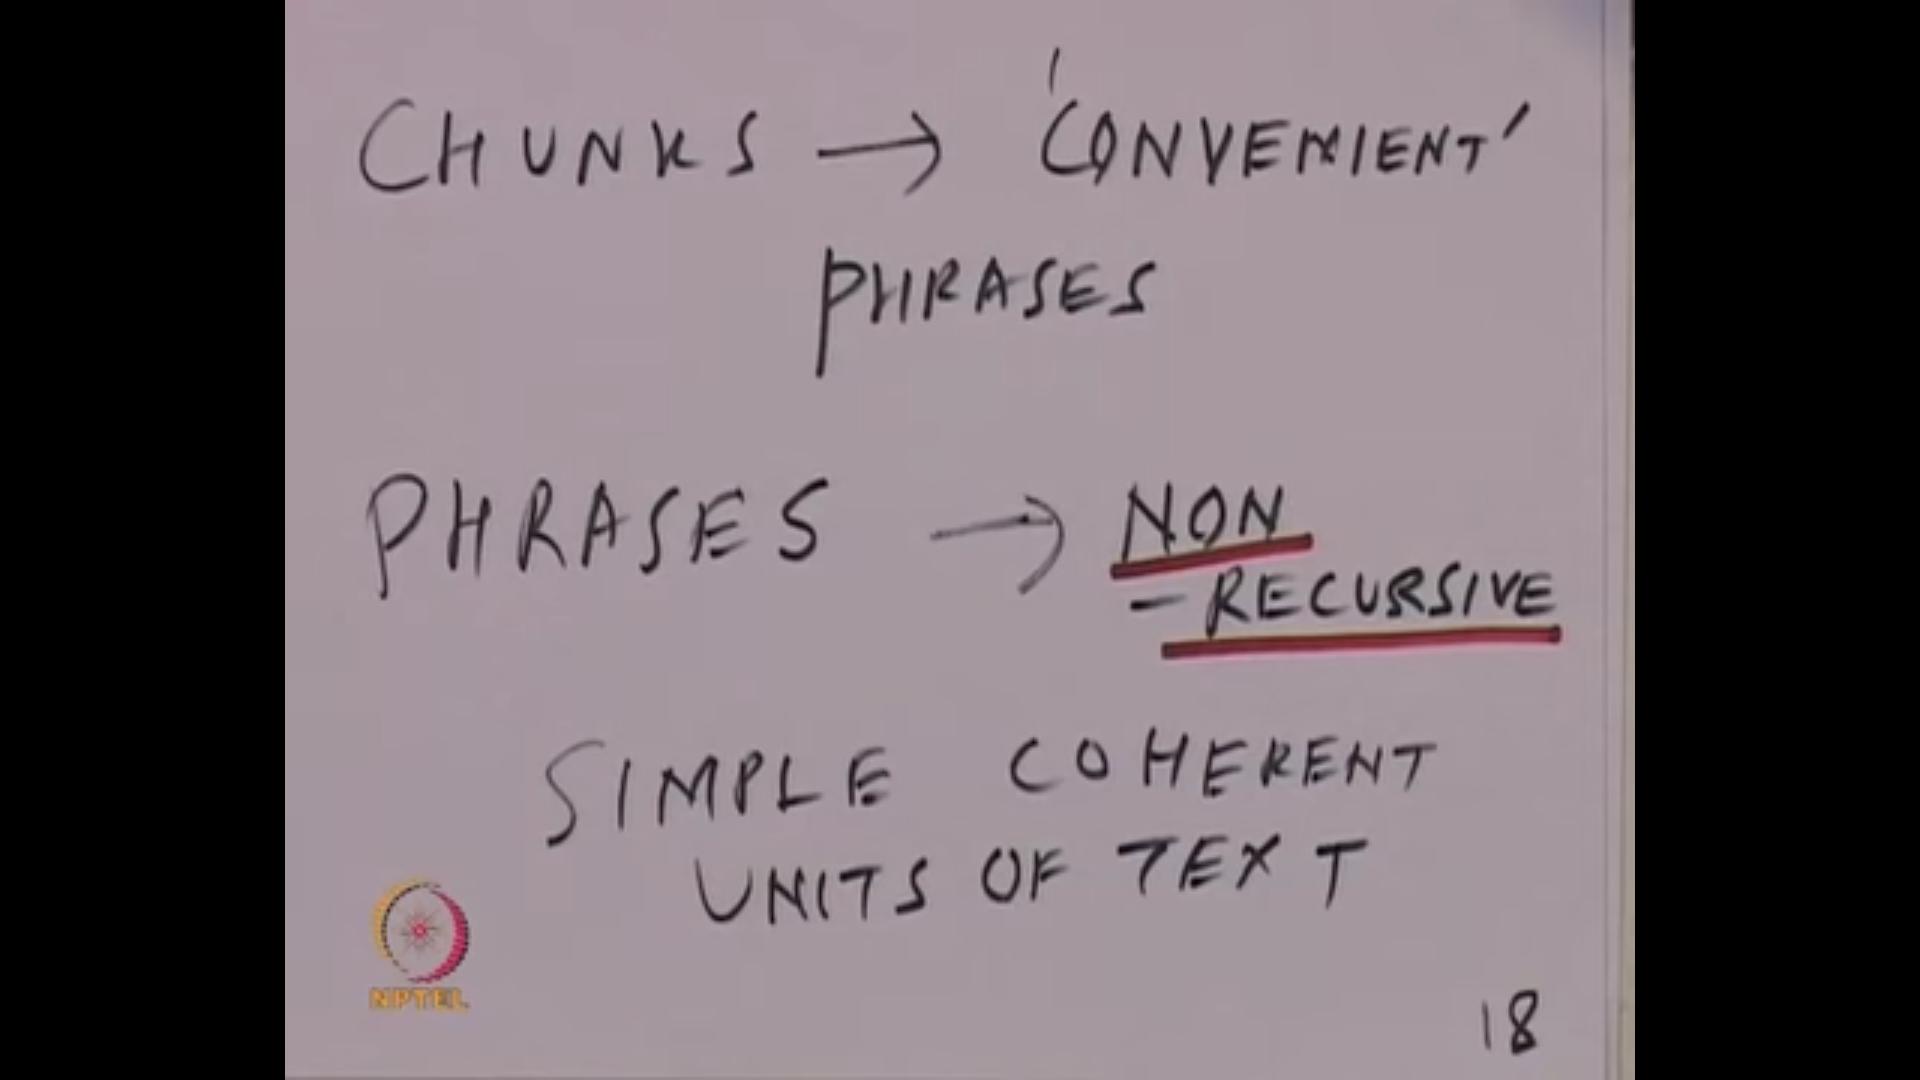 CHUNKS → 'CONVENIENT'
PHRASES
PHRASES → NON
- RECURSIVE
SIMPLE COHERENT
UNITS OF TEXT
NPTEL
18